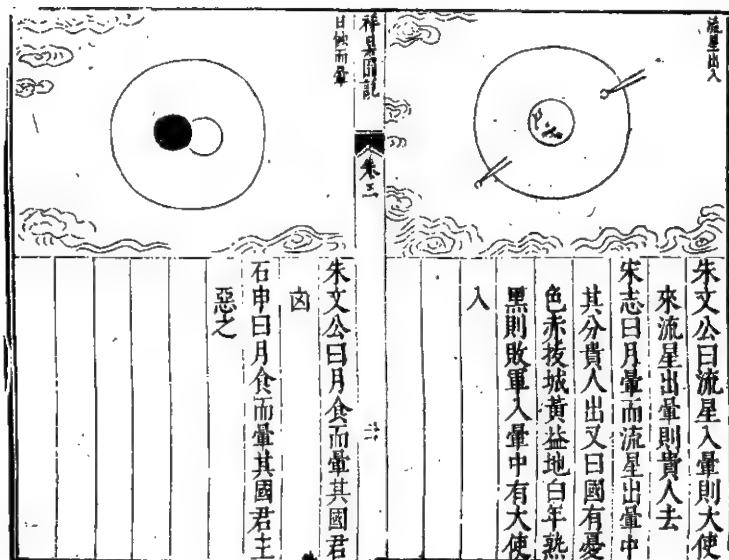 流星出入
朱文公曰流星入暈則大使
來流星出暈則貴人去
宋志曰月暈而流星出暈中
其分貴人出又曰國有憂
色赤拔城黃益地白年熟
黑則敗軍入暈中有大使
入
卷三
日蝕而暈
朱文公曰月食而暈其國君
凶
石申曰月食而暈其國君王
惡之